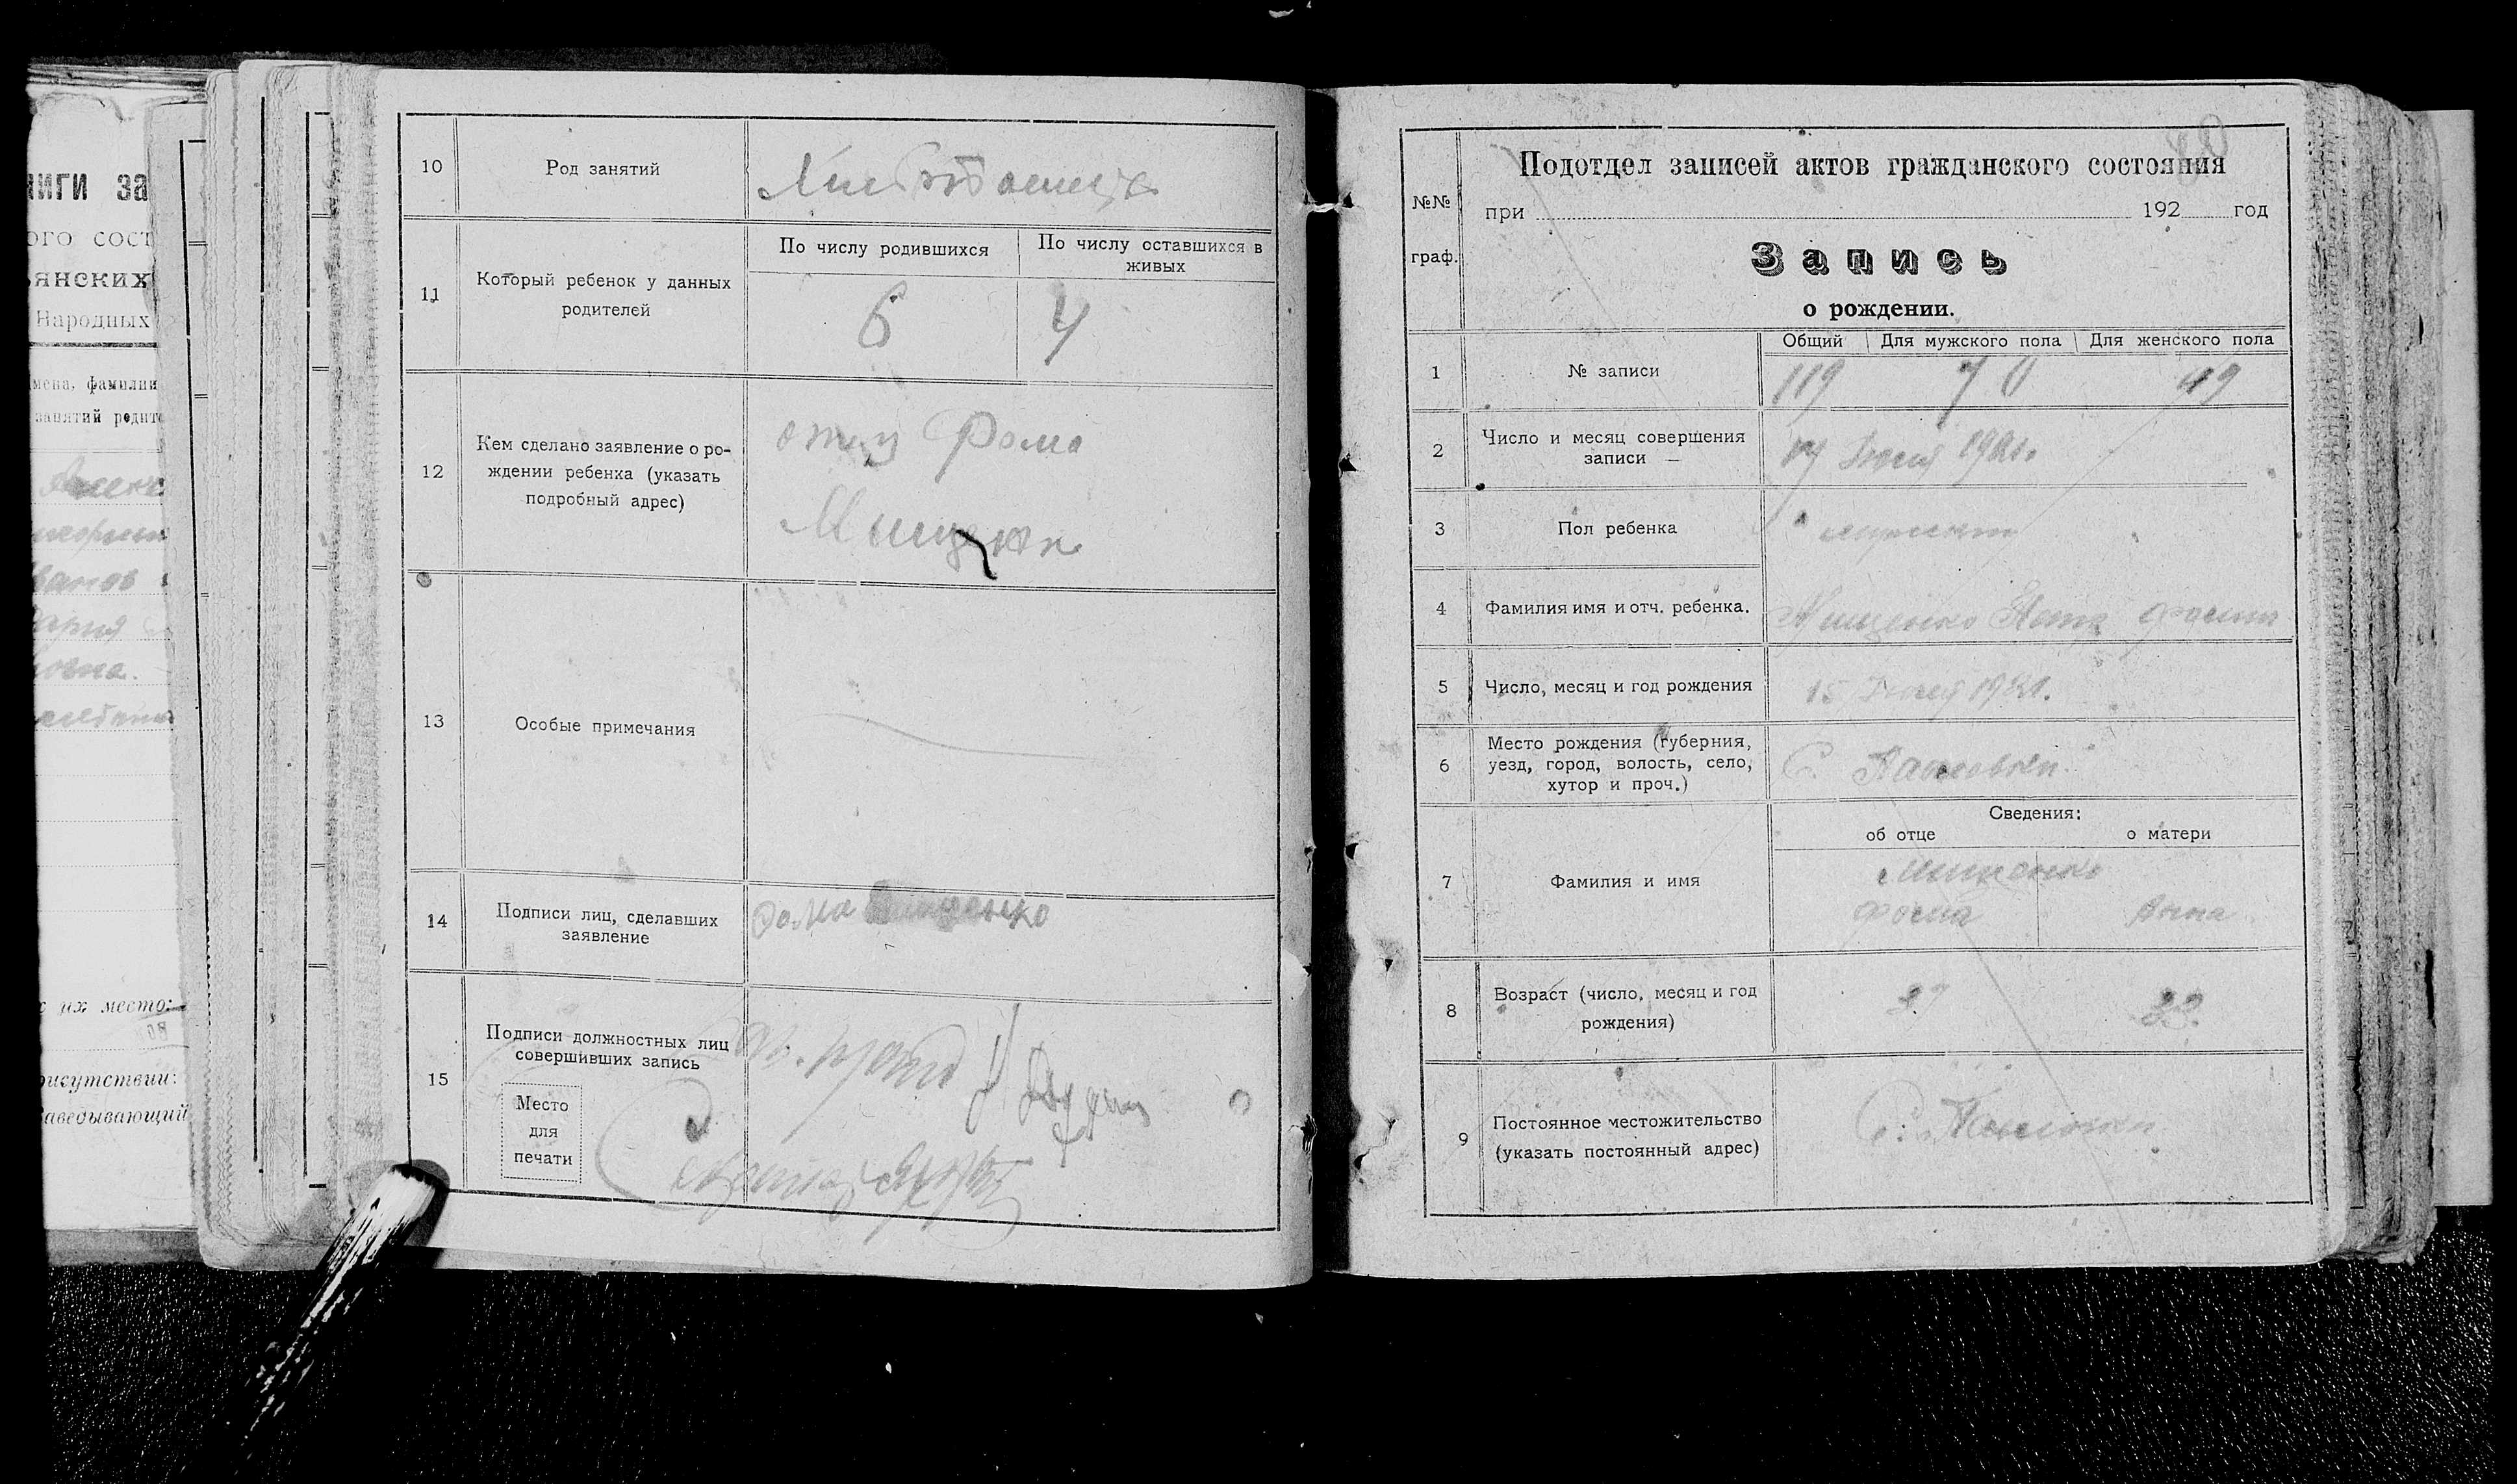 ниги за
ого сост
янских
Народных
мена, фамилии
занятий родите
Иванов
ария
овна.
х их место:
рисутствии:
аведывающий
10 Род занятий Хлебопашец
11 Который ребенок у данных родителей
По числу родившихся
По числу оставшихся в живых
6 4
12 Кем сделано заявление о ро-
ждении ребенка (указать
подробный адрес)
отец Фома
Мищенко
13 Особые примечания
14 Подписи лиц, сделавших
заявление
Фома Мищенко
15 Подписи должностных лиц
совершивших запись
Место
для
печати
Подотдел записей актов гражданского состояния
№№
граф.
при 192 год
Запись
о рождении.
Общий Для мужского пола Для женского пола
1 № записи 119 70 49
2 Число и месяц совершения
записи —
17 1921.
3 Пол ребенка
4 Фамилия имя и отч. ребенка. Мищенко
5 Число, месяц и год рождения 15 1921.
6 Место рождения (губерния,
уезд, город, волость, село,
хутор и проч.)
С.
Сведения:
об отце о матери
7 Фамилия и имя
Мищенко
Фома Анна
8 Возраст (число, месяц и год
рождения)
9 Постоянное местожительство
(указать постоянный адрес)
С.